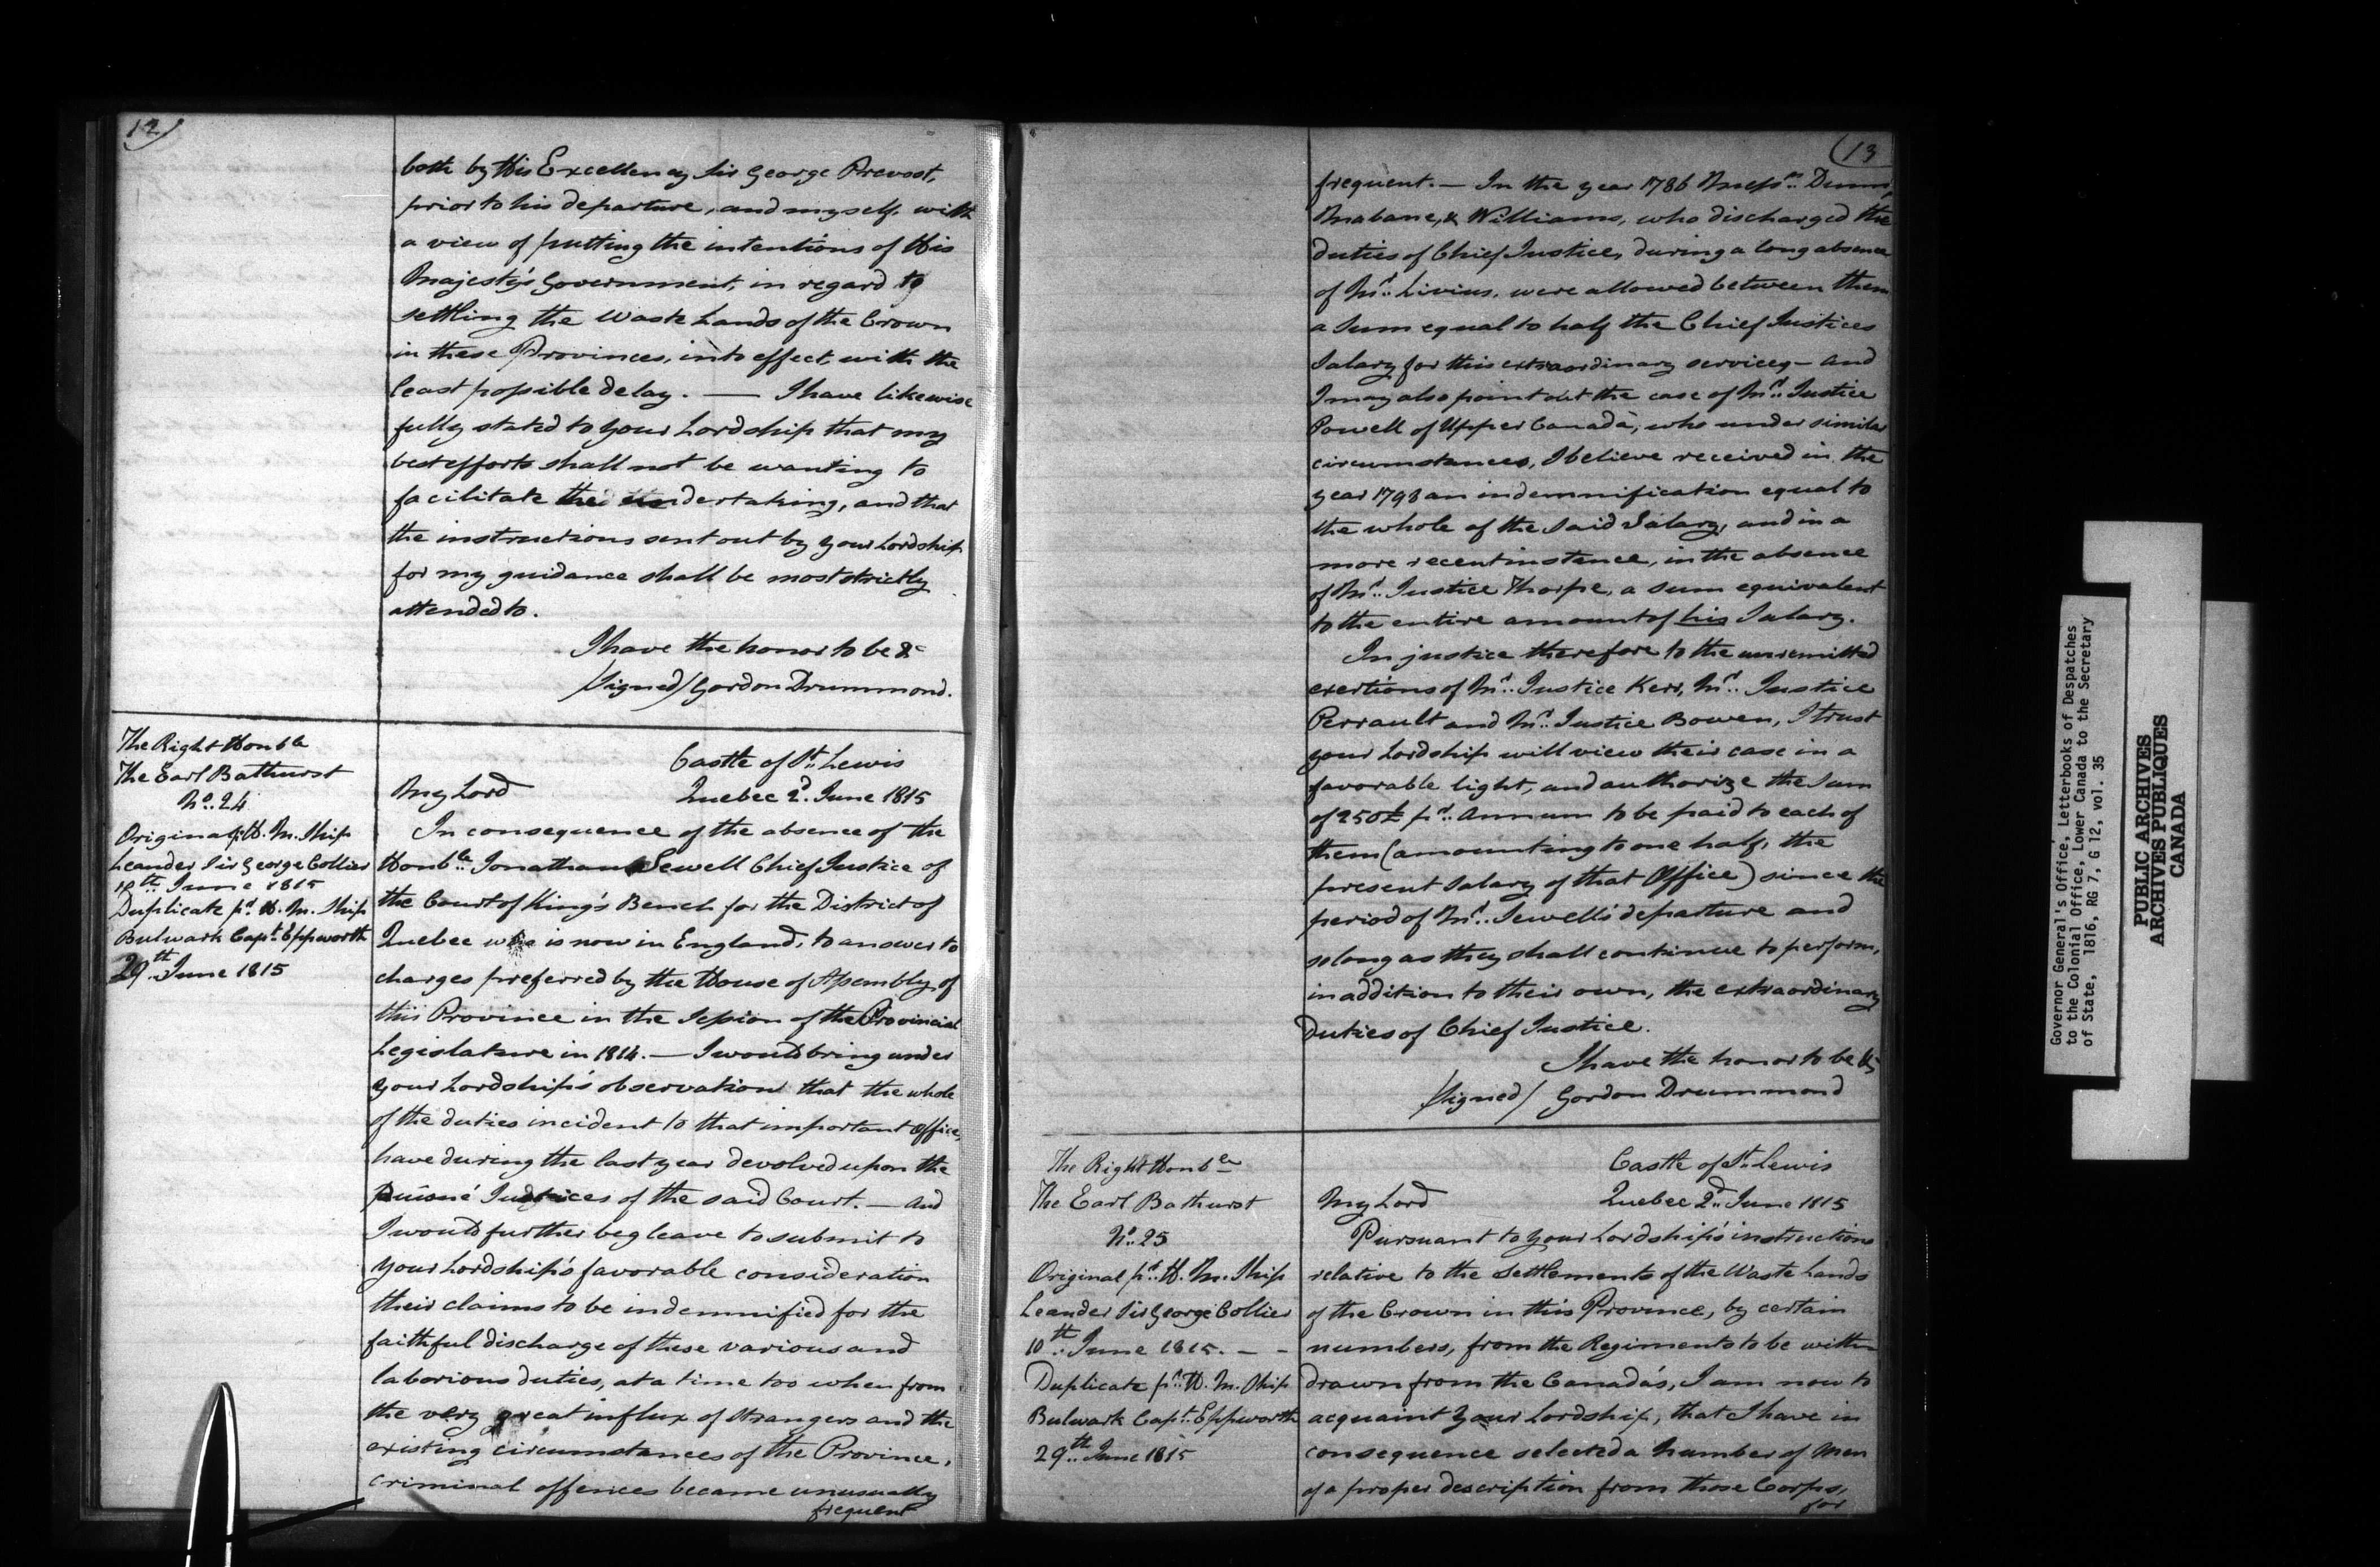 12)
both by His Excellency Sir George Prevost,
prior to his departure, and myself, with
a view of putting the intentions of His
Majesty's Government, in regard to
settling the Waste Lands of the Crown
in these Provinces, into effect, with the
least possible delay. — I have likewise
fully stated to your Lordship that my
best efforts shall not be wanting to
facilitate the undertaking, and that
the instructions sent out by your Lordship
for my guidance shall be most strictly
attended to.
I have the honor to be &c
/Signed/ Gordon Drummond.
The Right Honble
The Earl Bathurst
No. 24
Original pr H. M. Ship
Leander Sir George Collier
10th June 1815
Duplicate pr H. M. Ship
Bulwark Capt. Eppworth
29th June 1815
Castle of St. Lewis
My Lord Quebec 2d. June 1815
In consequence of the absence of the
Honble. Jonathan Sewell Chief Justice of
the Court of King's Bench for the District of
Quebec who is now in England, to answer to
charges preferred by the House of Assembly of
this Province in the Session of the Provincial
Legislature in 1814. — I would bring under
your Lordship's observation that the whole
of the duties incident to that important Office,
have during the last year devolved upon the
Puisné Justices of the said Court. — And
I would further beg leave to submit to
your Lordship's favorable consideration
their claims to be indemnified for the
faithful discharge of these various and
laborious duties, at a time too when from
the very great influx of strangers and the
existing circumstances of the Province,
criminal offences became unusually
frequent
(13
frequent. — In the year 1786 Messrs. Dunn,
Mabane, & Williams, who discharged the
duties of Chief Justice, during a long absence
of Mr. Livius, were allowed between them
a Sum equal to half the Chief Justices
Salary for this extraordinary service, — And
I may also point out the case of Mr. Justice
Powell of Upper Canada, who under similar
circumstances, I believe received in the
year 1798 an indemnification equal to
the whole of the said Salary, and in a
more recent instance, in the absence
of Mr. Justice Thorpe, a sum equivalent
to the entire amount of his Salary.
In justice therefore to the unremitted
exertions of Mr. Justice Kerr, Mr. Justice
Perrault and Mr. Justice Bowen, I trust
your Lordship will view their case in a
favorable light, and authorize the Sum
of 250£ pr. Annum to be paid to each of
them (amounting to one half, the
present Salary of that Office) since the
period of Mr. Sewell's departure and
so long as they shall continue to perform,
in addition to their own, the extraordinary
Duties of Chief Justice.
I have the honor to be &c
/Signed/ Gordon Drummond
The Right Honble
The Earl Bathurst
No. 25
Original pr. H. M. Ship
Leander Sir George Collier
10th. June 1815. — -
Duplicate pr. H. M. Ship
Bulwark Capt. Eppworth
29th. June 1815
Castle of St. Lewis
My Lord Quebec 2d. June 1815
Pursuant to your Lordship's instructions
relative to the Settlements of the Waste Lands
of the Crown in this Province, by certain
numbers, from the Regiments to be with-
drawn from the Canada's, I am now to
acquaint your Lordship, that I have in
consequence selected a number of Men
of a proper description from those Corps,
for
Governor General's Office, Letterbooks of Despatches
to the Colonial Office, Lower Canada to the Secretary
of State, 1816, RG 7, G 12, vol. 35
PUBLIC ARCHIVES
ARCHIVES PUBLIQUES
CANADA